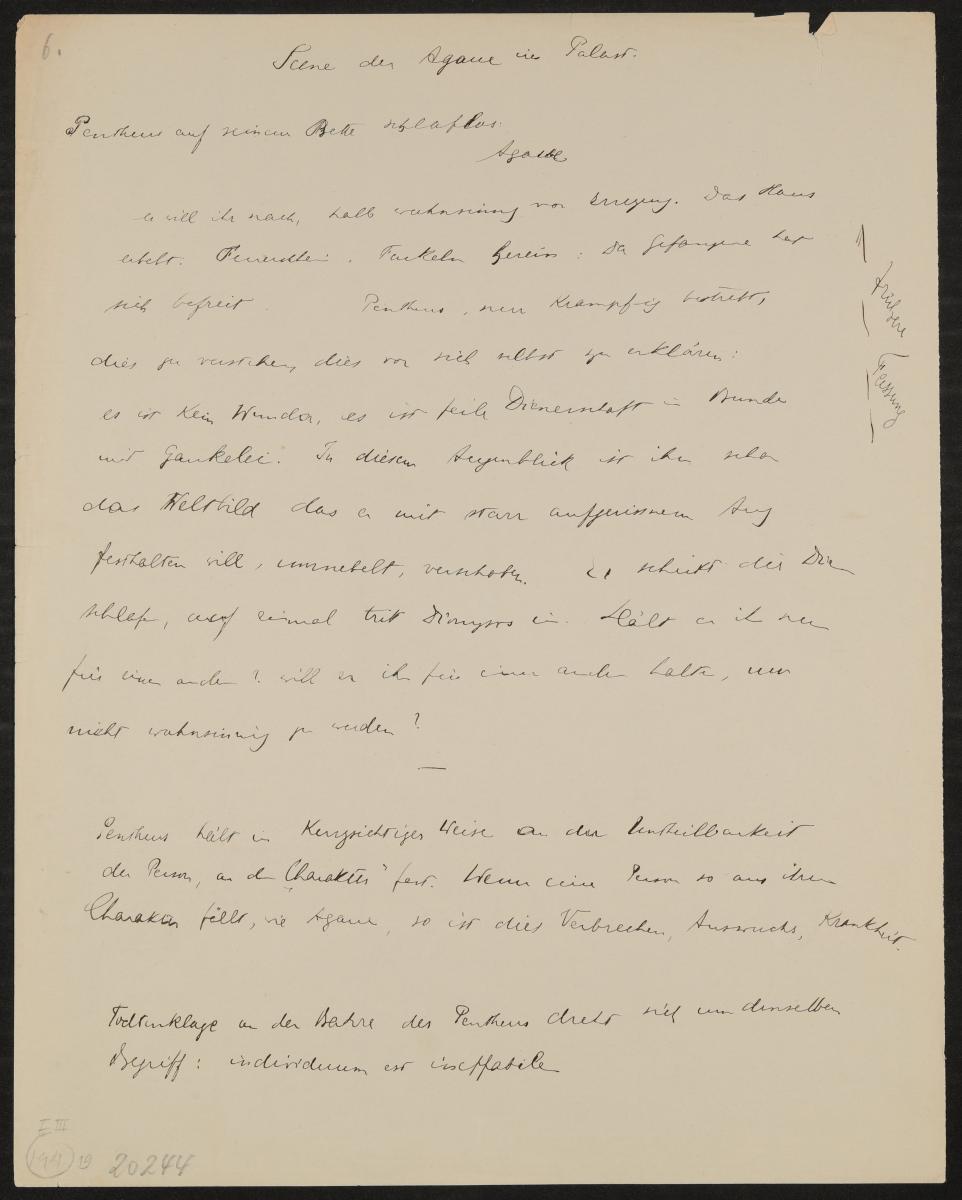 6.
Scene der Agaue im Palast.
Pentheus auf seinem Bette schlaflos.
Agaue
er will ihr nach, halb wahnsinnig vor Erregung. Das Haus
erbebt. Feuerschein. Fackeln herein: Der Gefangene hat
sich befreit. Pentheus, nur krampfig bestrebt,
dies zu verstehen, dies vor sich selbst zu erklären:
es ist kein Wunder, es ist feile Dienerschaft im Bunde
mit Gaukelei. In diesem Augenblick ist ihm schon
das Weltbild das er mit starr aufgerissnem Aug
festhalten will, umnebelt, verschoben. Er schickt die Diener
schlafen, auf einmal tritt Dionysos ein. Hält er ihn nun
für einen andern? will er ihn für einen andern halten, um
nicht wahnsinnig zu werden?
—
Pentheus hält in kurzsichtiger Weise an der Untheilbarkeit
der Person, an dem „Charakter" fest. Wenn eine Person so aus ihrem
Charakter fällt, wie Agaue, so ist dies Verbrechen, Auswuchs, Krankheit.
Todtenklage an der Bahre des Pentheus dreht sich um denselben
Begriff: individuum est ineffabile
frühere Fassung
I III
194 19 20244